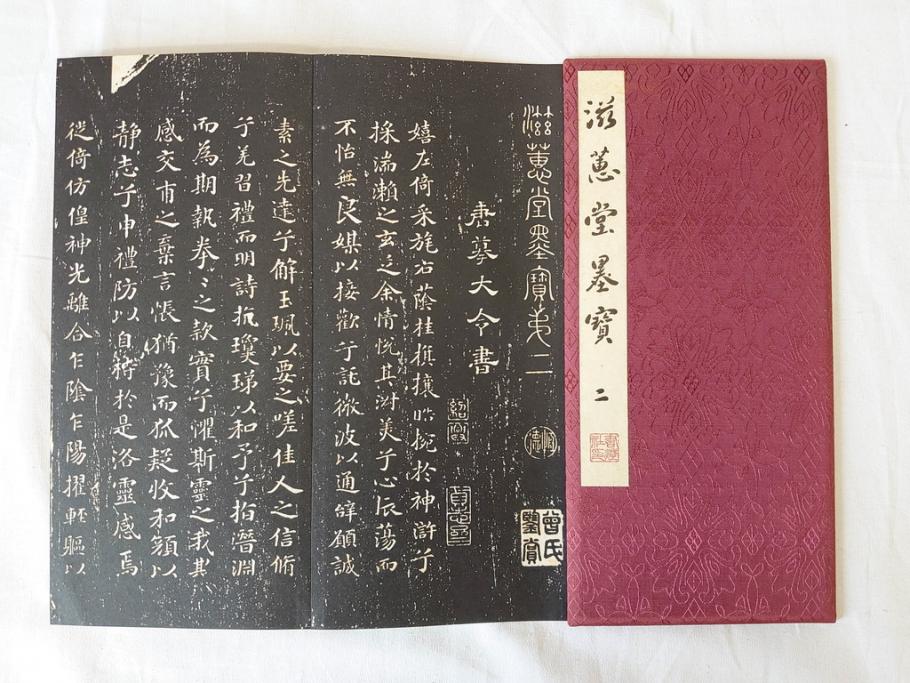 滋蕙堂墨寶 二
滋蕙堂墨寶弟二
唐摹大令書
紹興
曾氏鑒賞
嬉左倚采旄右蔭桂旗攘皓捥於神滸兮
採湍瀨之玄芝余情悅其淑美兮心辰蕩而
不怡無良媒以接歡兮託微波以通辭願誠
素之先達兮解玉珮以要之嗟佳人之信脩
兮羌習禮而明詩抗瓊珶以和予兮指潛淵
而為期執拳々之款實兮懼斯靈之我其
感交甫之棄言悵猶豫而狐疑收和顏以
静志兮申禮防以自持於是洛靈感焉
徙倚仿偟神光離合乍陰乍陽擢軽軀以